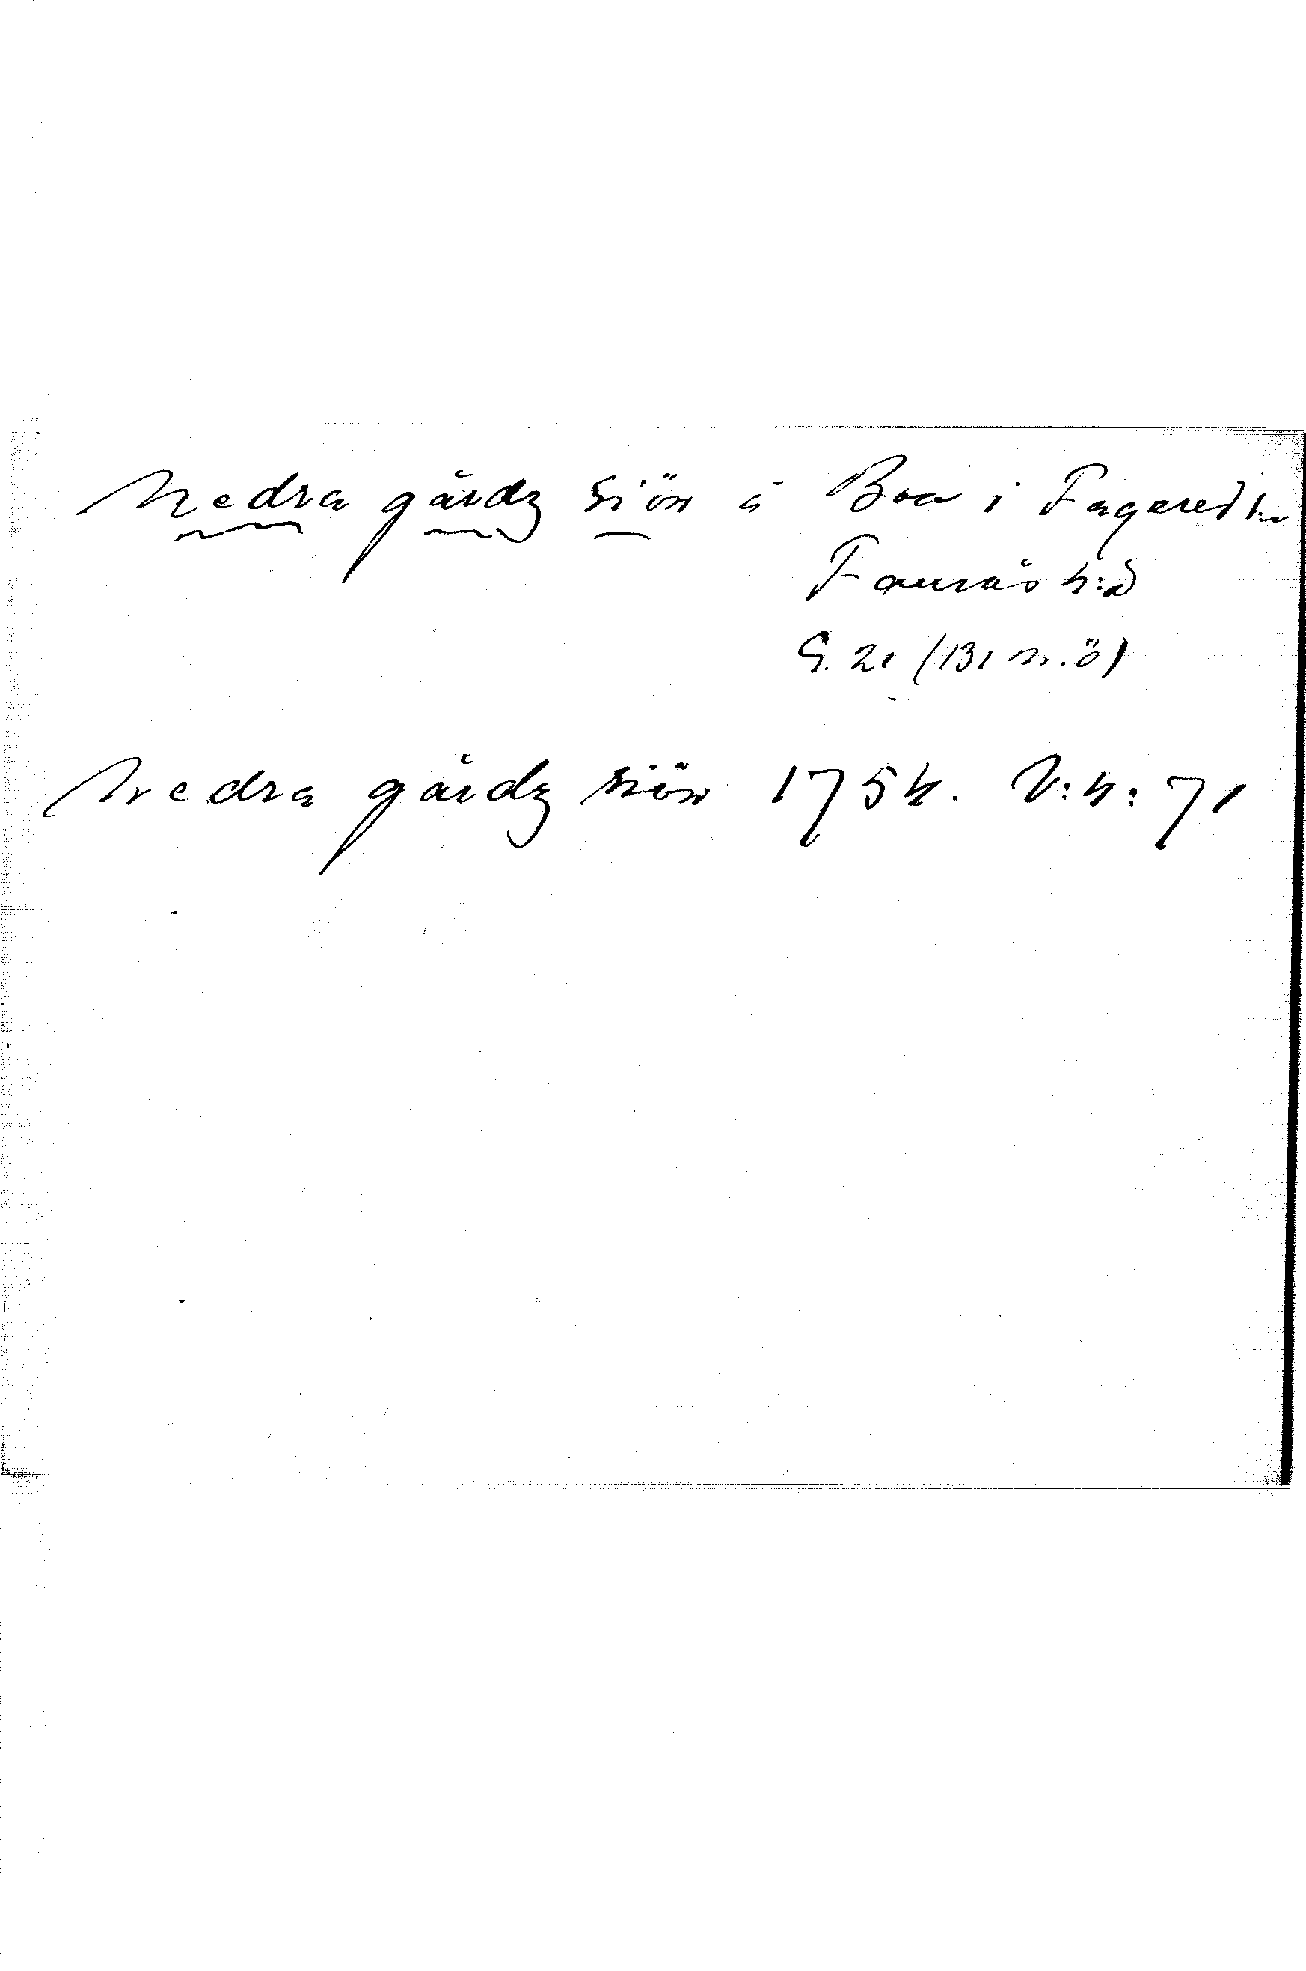 Nedra gårdz siön å Boa i Fagered sn
Faurås h:d
G. 21 (131 n.ö)
Nedra gårdz siön 1754. V:4:71